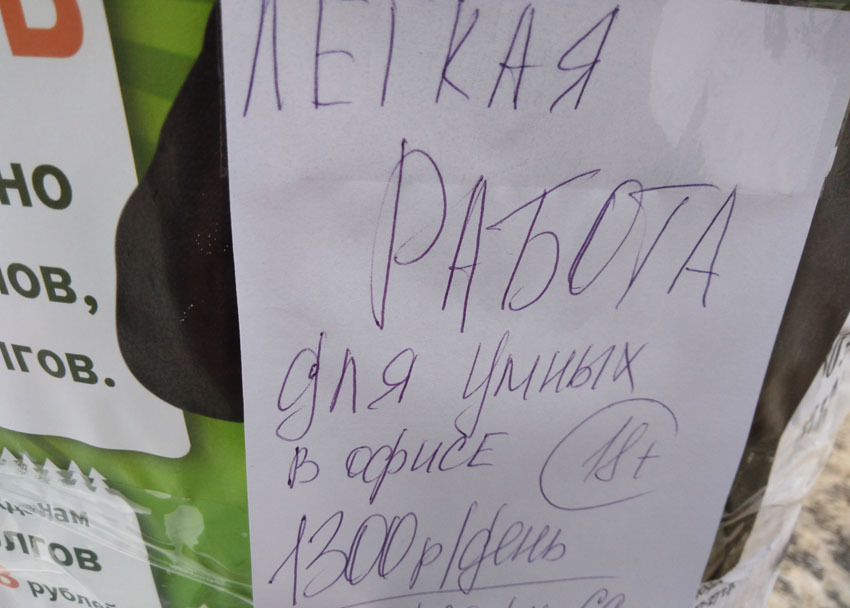 ЛЕГКАЯ
РАБОТА
для умных
в офисе 18+
1300р/день
но
ов,
лгов.
нам
лгов
рублей